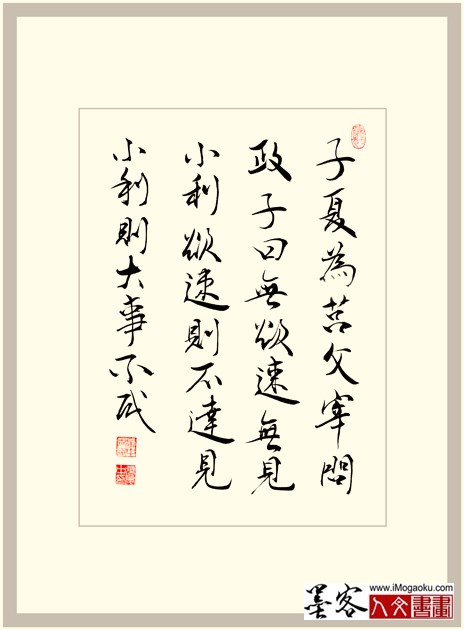 子夏為莒父宰問
政子曰無欲速無見
小利欲速則不達見
小利則大事不成
www.iMogaoku.com
墨客
人文書畫